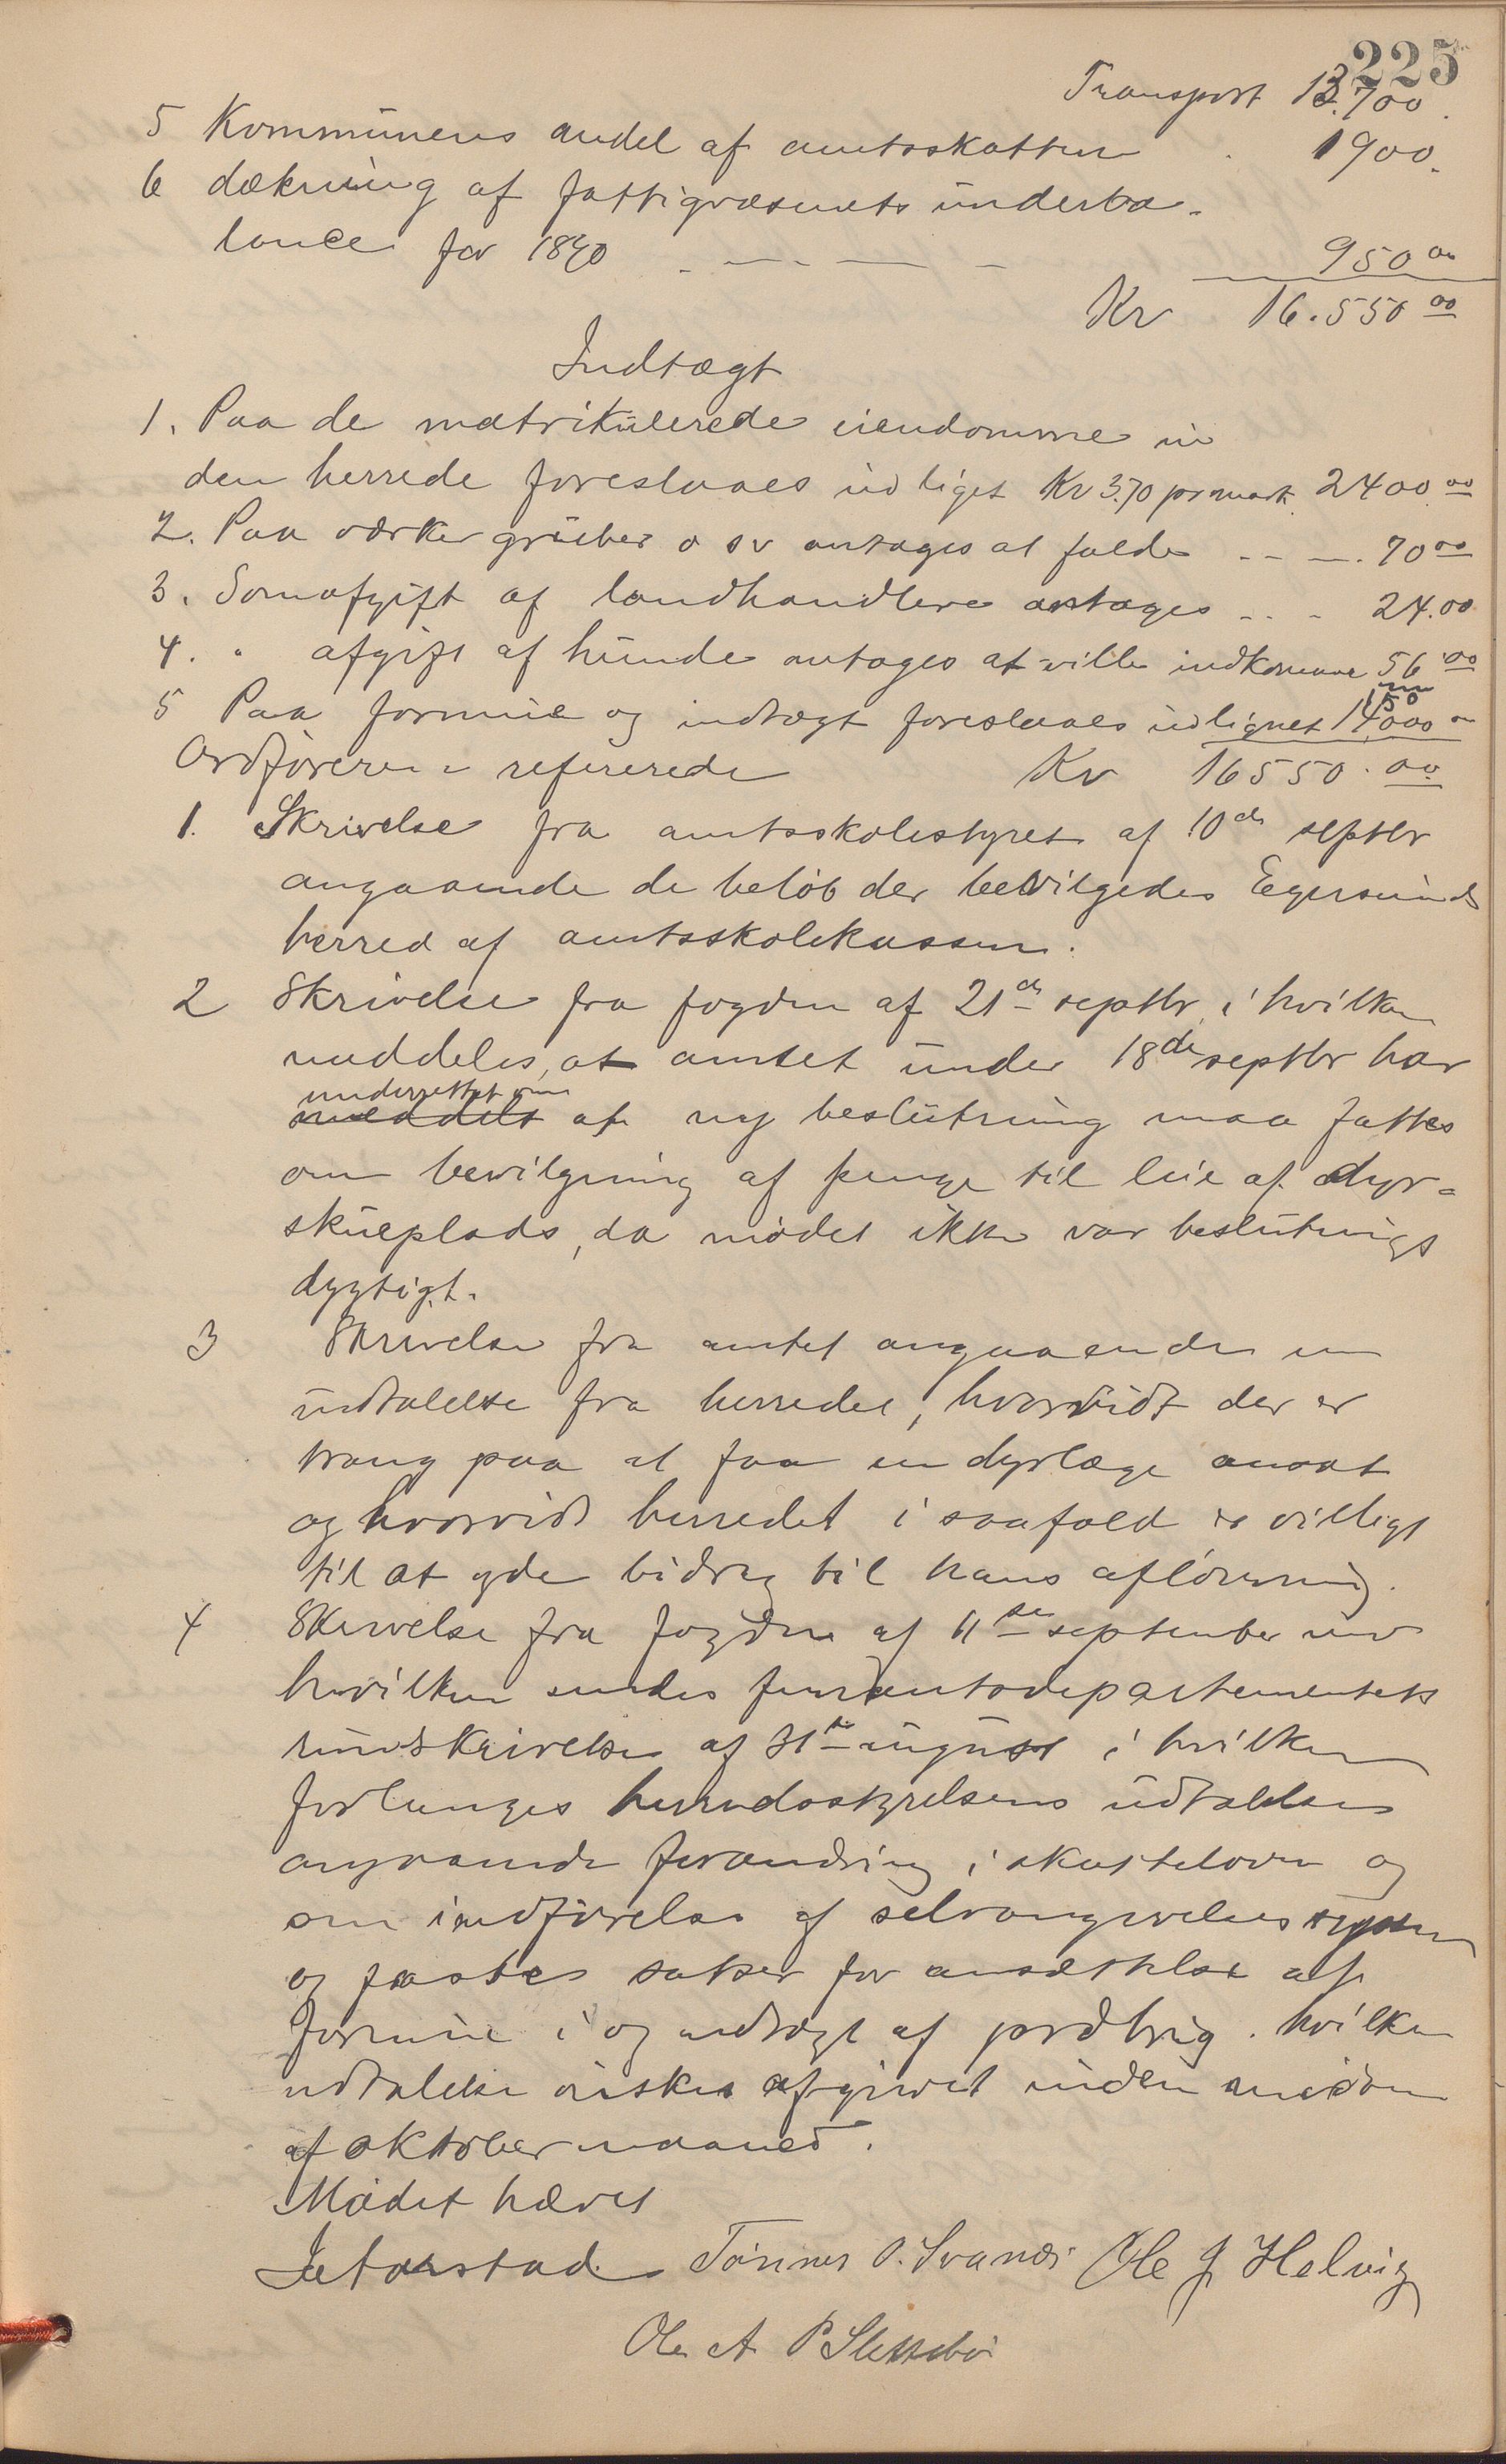 225
Transport 13.700.
5 Kommunens andel af amtsskatten . 1900.
6 dækning af fattigvæsenets underba-
lance for 1890 - - - - 950 00
Kr 16.550 00
Indtægt
1. Paa de matrikulerede eiendomme i
den herrede foreslaaes udliget Kr 3.70 pr mark 2400 00
2. Paa værker gruber o s v antages at falde - - - 70 00
3. Somafgift af landhandlere antages - - - 24.00
4. " afgift af hunde antages at ville indkomme 56 00
5 Paa formue og indtægt foreslaaes udlignet 14000
Ordföreren refererede Kr 16550.00
1. Skrivelse fra amtsskolestyret af 10de septbr
angaaende de belöb der bevilgedes Egersunds
herred af amtsskolekassen.
2 Skrivelse fra fogden af 21de septbr, i hvilken
meddeles, at amtet under 18de septbr har
underrettet om
meddelt at ny beslutning maa fattes
om bevilgning af penge til leie af dyr-
skueplads, da mödet ikke var beslutnings
dygtigt.
3 Skrivelse fra amtet angaaende en
udtalelse fra herredet, hvorvidt der er
trang paa at faa en dyrlæge ansat
og hvorvidt herredet i saafald er villigt
til at yde bidrag til hans aflönning.
4 Skrivelse fra fogden af 11te september med
hvilken sendes finantsdepartementets
rundskrivelse af 31te august i hvilken
forlanges herredsstyrelsens udtalelse
angaaende forandring i skatteloven og
om indförelse af selvangivelses system
og faste satser for ansættelse af
formue i og indtægt af jordbrug. hvilken
udtalelse önskes afgivet inden midten
af oktober maaned.
Mödet hævet
Tönnes O. Svanæs Ole J Helvig
Ole A P Slettebö